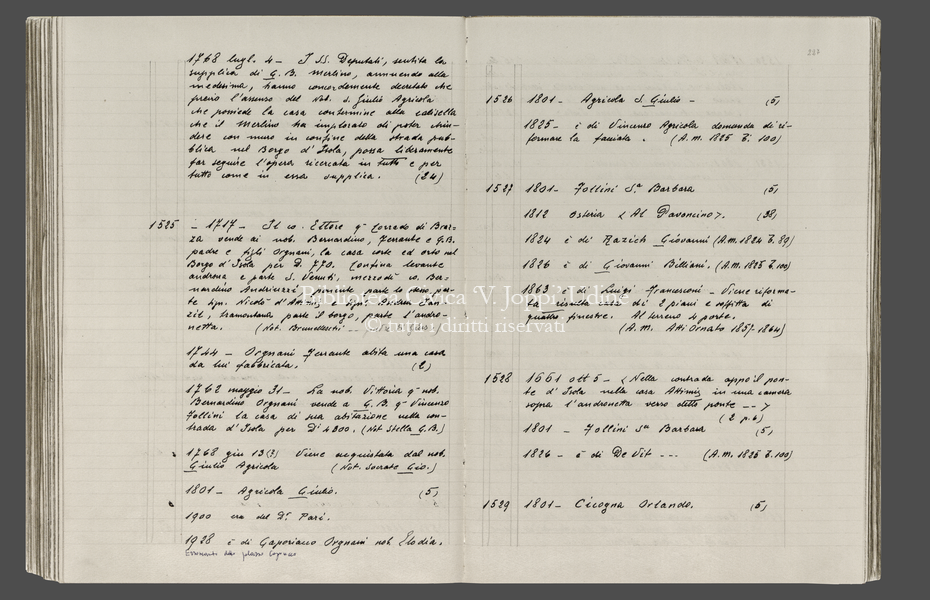 1768 lugl. 4 - I SS. Deputati, sentita la
supplica di G. B. Merlino, annuendo alla
medesima, hanno concordemente decretato che
previo l'assenso del Nob. S. Giulio Agricola
che possiede la casa contermine alla calisella
che il Merlino ha implorato di poter chiu=
dere con muro in confine della strada pub=
blica nel Borgo d'Isola, possa liberamente
far seguire l'opera ricercata in tutto e per
tutto come in essa supplica. (24)
1525 - 1717 - Il co. Ettore q.m Corrado di Braz=
zà vende ai nob. Bernardino, Ferrante e G.B.
padre e figli Orgnani, la casa corte ed orto nel
Borgo d'Isola per D. 770. Confina levante
androna e parte S. Venuti, mezzodì co. Ber=
nardino
tramontana, parte il borgo, parte l'andro=
netta. (Not. Brunelleschi
1744 - Orgnani Ferrante abita una casa
da lui fabbricata. (2)
1762 maggio 31 - La nob. Vittoria q.m nob.
Bernardino Orgnani vende a G. B. q.m Vincenzo
Follini la casa di sua abitazione nella con=
trada d'Isola per D.i 4200. (Not Stella G.B.)
1768 giu 13(?) Viene acquistata dal nob.
Giulio Agricola (Not. Socrate Gio.)
1801 - Agricola Giulio. (5)
1900 era del Dr. Pari.
1928 è di Gaporiacco Orgnani nob. Elodia.
237
1526 1801 - Agricola S. Giulio - (5)
1825 - è di Vincenzo Agricola domanda di ri=
formare la facciata. (A.m. 1825 F. 100)
1527 1801 - Follini S.a Barbara (5)
1812 osteria < Al Davoncino >. (38)
1824 è di Razich Giovanni (A.m. 1824 F. 89)
1826 è di Giovanni Billiani. (A.m. 1825 F. 100)
1863 è di Luigi Franzesconi - Viene riforma=
ta di 2 piani e soffitta di
quattro finestre. Al terreno 4 porte.
(A.m. Atti Ornato 1857-1864)
1528 1661 ott 5 - < Nella contrada appo il pon=
te d'Isola nella casa Attimis in una camera
sopra l'andronetta verso detto ponte -- >
(2 p. 6)
1801 - Follini S.a Barbara (5)
1826 - è di De Vit --- (A.m. 1825 F. 100)
1529 1801 - Cicogna Orlando. (5)
Biblioteca Civica 'V. Joppi' Udine
© tutti i diritti riservati